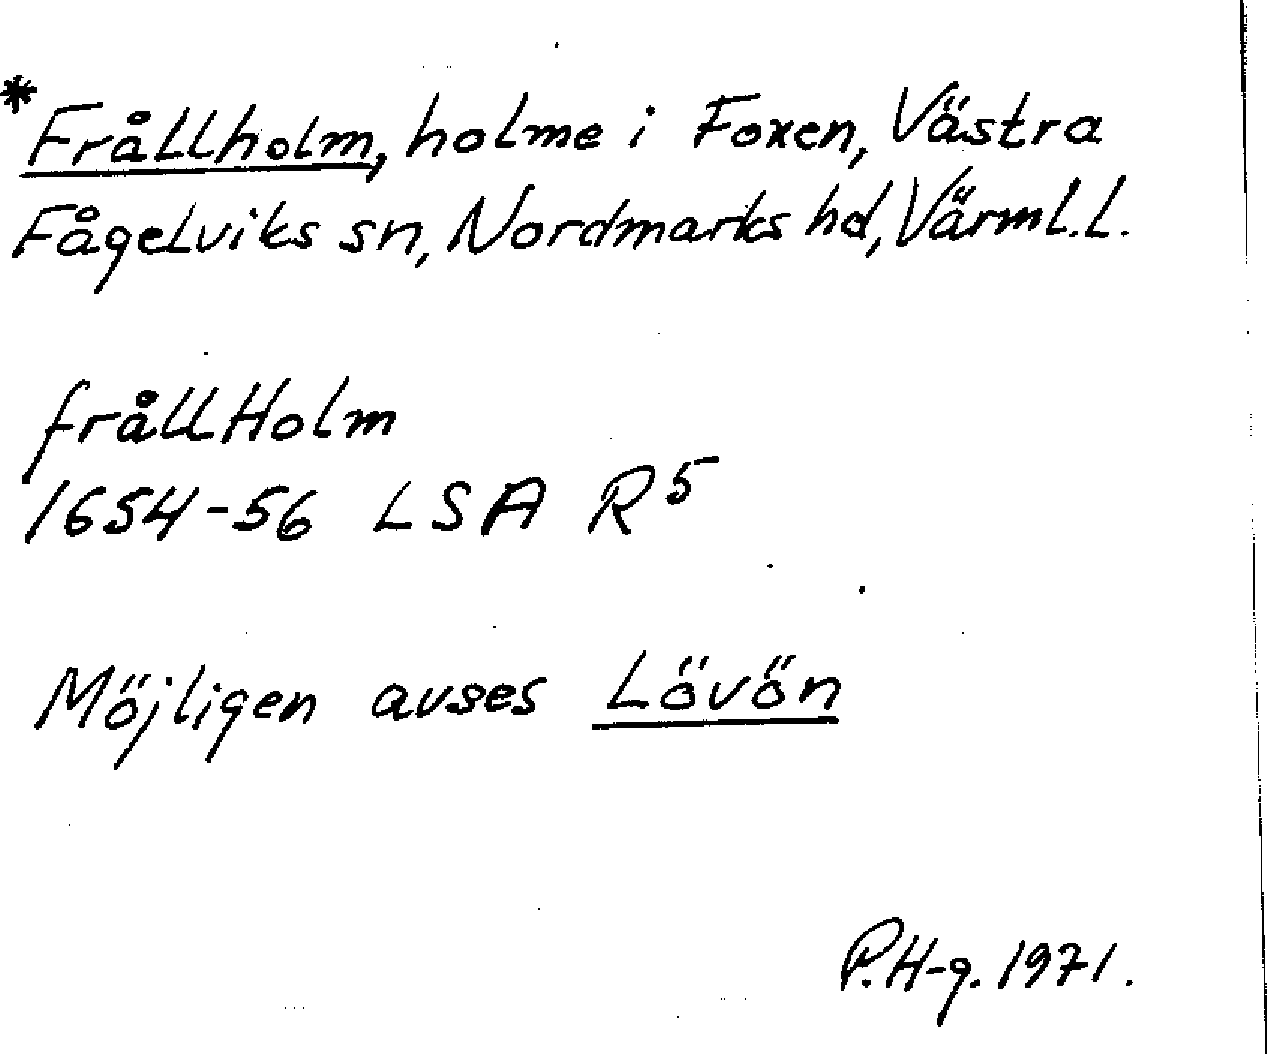 *Frållholm, holme i Foxen, Västra
Fågelviks sn, Nordmarks hd, Värml.l.
frållHolm
1654-56 LSA R5
Möjligen avses Lövön
P.H-g. 1971.